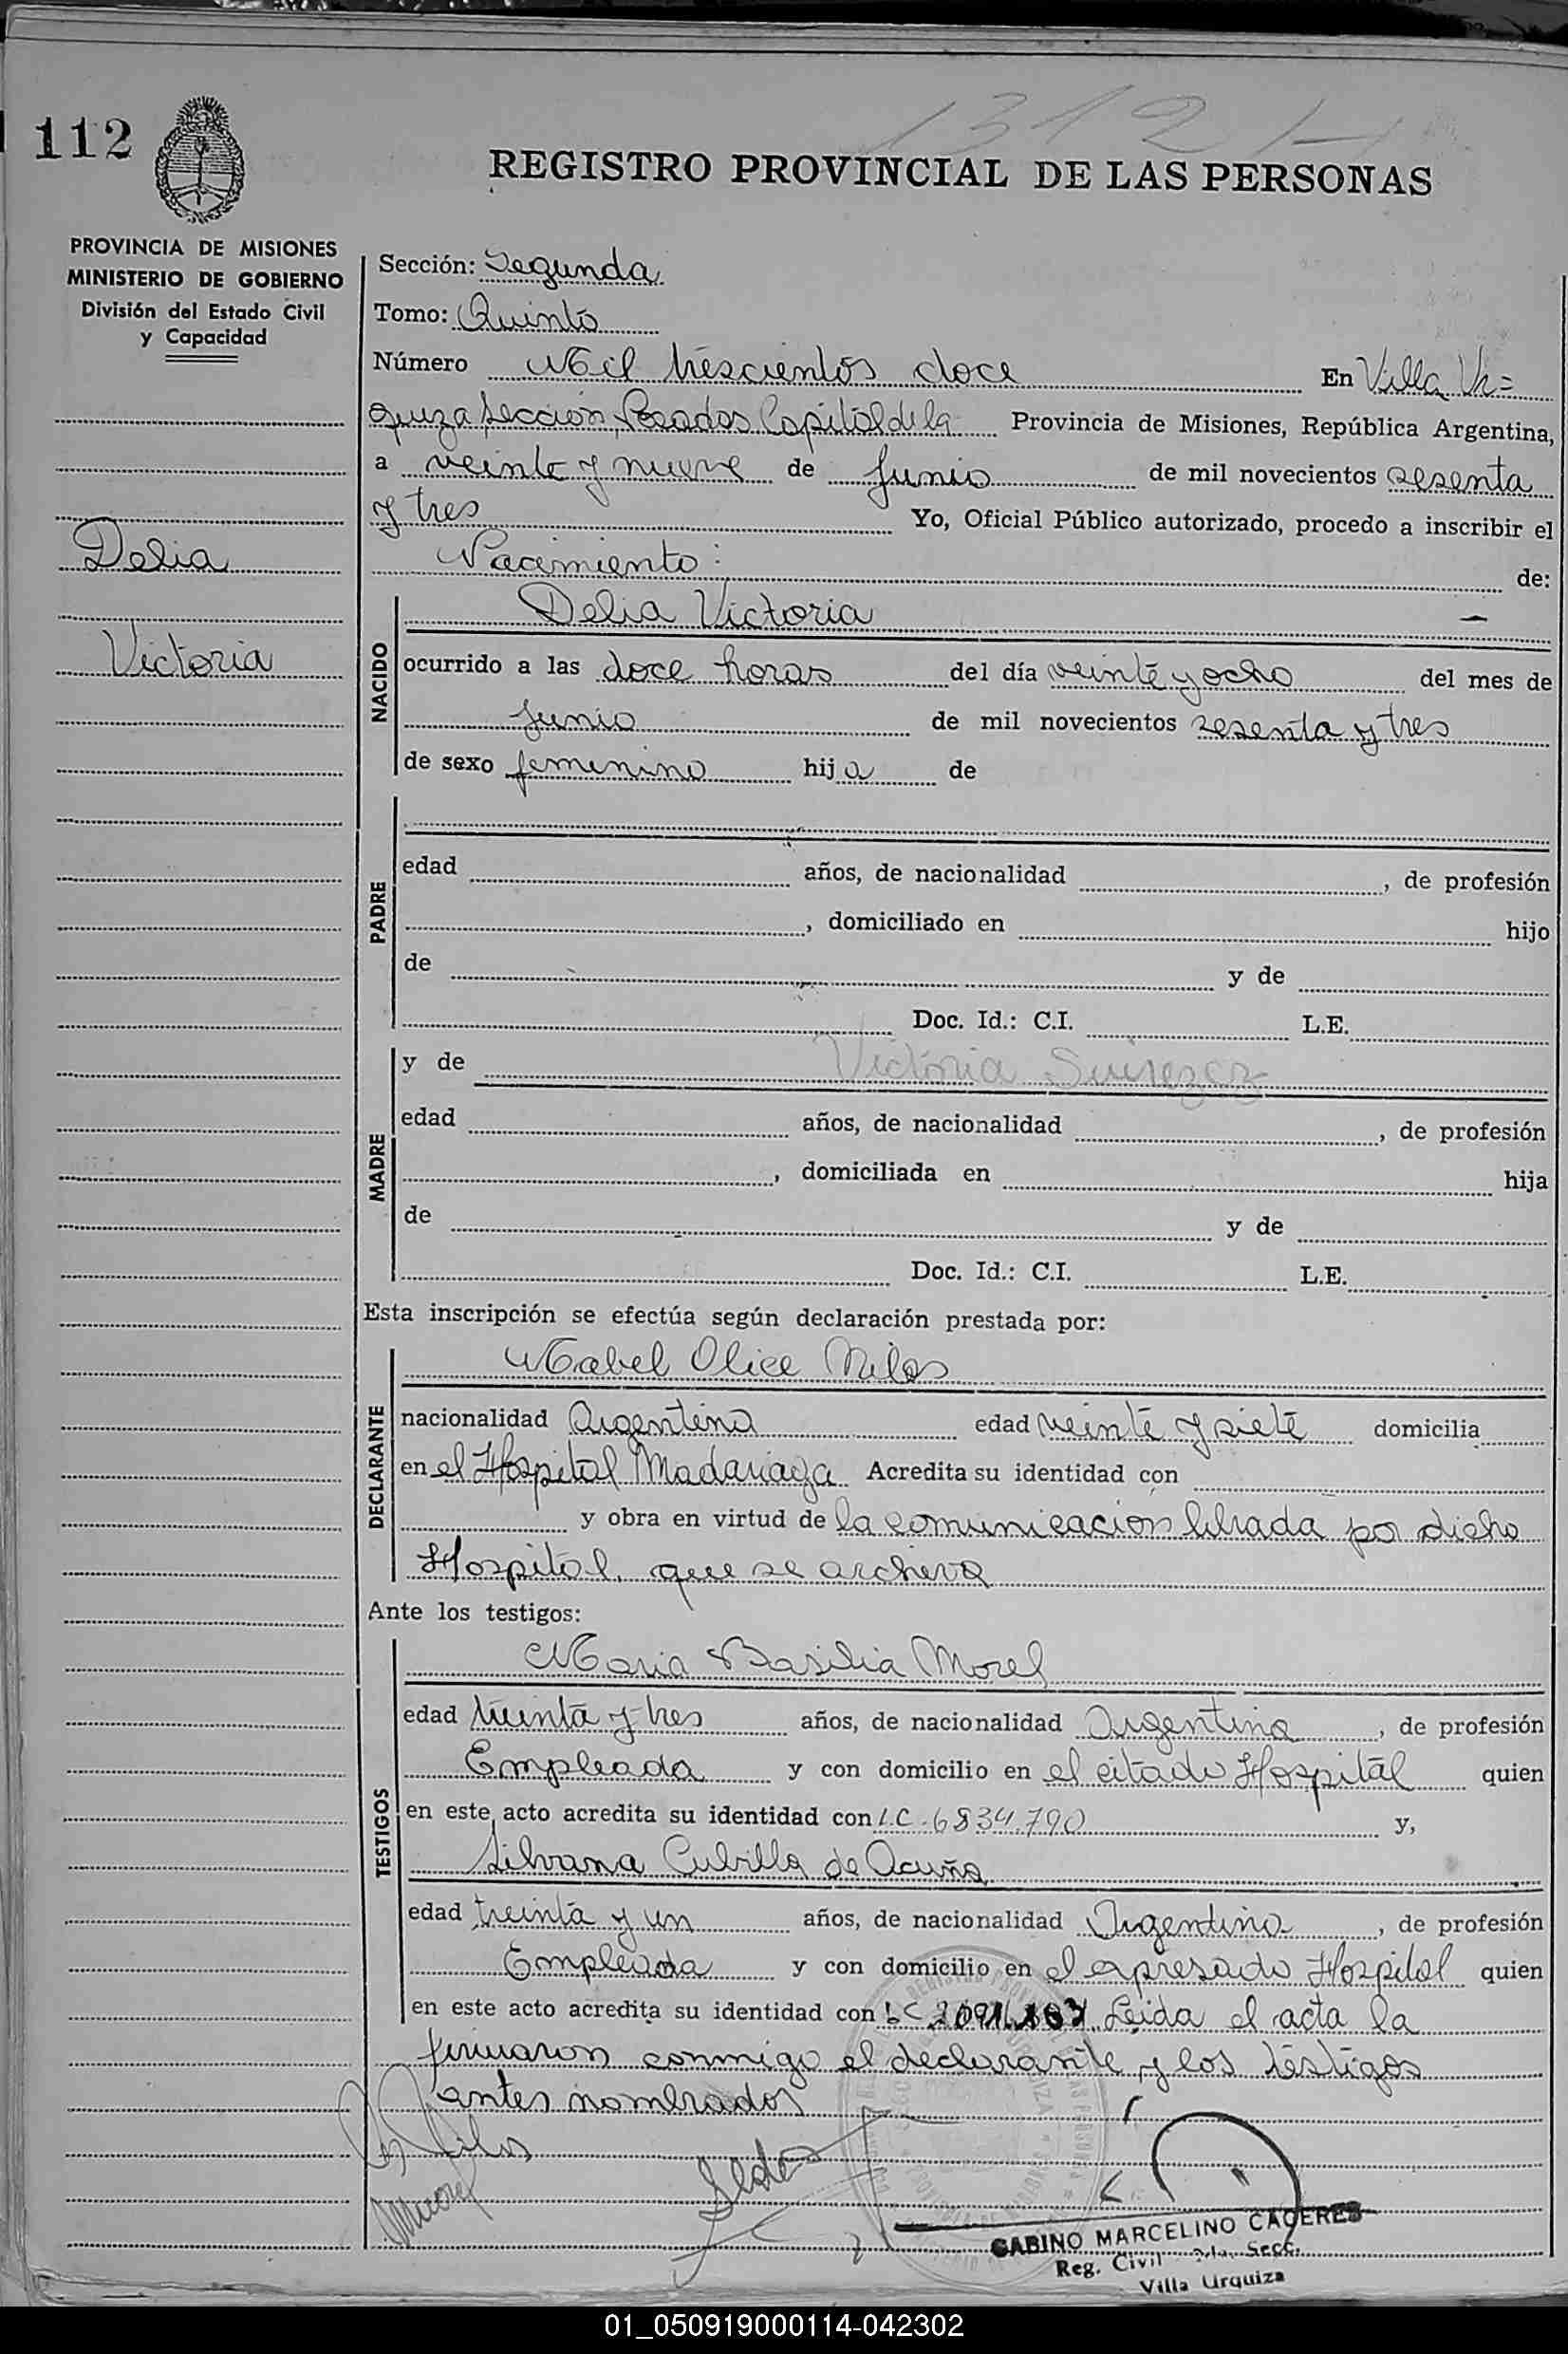 1312
112
REGISTRO PROVINCIAL DE LAS PERSONAS
PROVINCIA DE MISIONES
MINISTERIO DE GOBIERNO
División del Estado Civil
y Capacidad
Delia
Victoria
Sección: Segunda
Tomo: Quinto
Número Mil trescientos doce En Villa Ur=
quiza Sección, Posadas Capital de la Provincia de Misiones, República Argentina,
a veinte y nueve de Junio de mil novecientos sesenta
y tres Yo, Oficial Público autorizado, procedo a inscribir el
Nacimiento: de:
NACIDO
Delia Victoria —
ocurrido a las doce horas del día veinte y ocho del mes de
Junio de mil novecientos sesenta y tres
de sexo femenino hija de
PADRE
edad años, de nacionalidad , de profesión
, domiciliado en hijo
de y de
Doc. Id.: C.I. L.E.
MADRE
y de Victoria
edad años, de nacionalidad , de profesión
, domiciliada en hija
de y de
Doc. Id.: C.I. L.E.
Esta inscripción se efectúa según declaración prestada por:
DECLARANTE
Mabel Olice Milos
nacionalidad Argentina edad veinte y siete domicilia
en el Hospital Madariaga Acredita su identidad con
y obra en virtud de la comunicacion librada por dicho
Hospital, que se archiva
Ante los testigos:
TESTIGOS
Maria Basilia Morel
edad treinta y tres años, de nacionalidad Argentina , de profesión
Empleada y con domicilio en el citado Hospital quien
en este acto acredita su identidad con L.C. 6834.790 y,
Silvana Cubilla de Acuña
edad treinta y un años, de nacionalidad Argentina , de profesión
Empleada y con domicilio en el expresado Hospital quien
en este acto acredita su identidad con LC Leida el acta la
firmaron conmigo el declarante y los testigos
antes nombrados
GABINO MARCELINO CACERES
Reg. Civil 2da. Secc.
Villa Urquiza
01_050919000114-042302